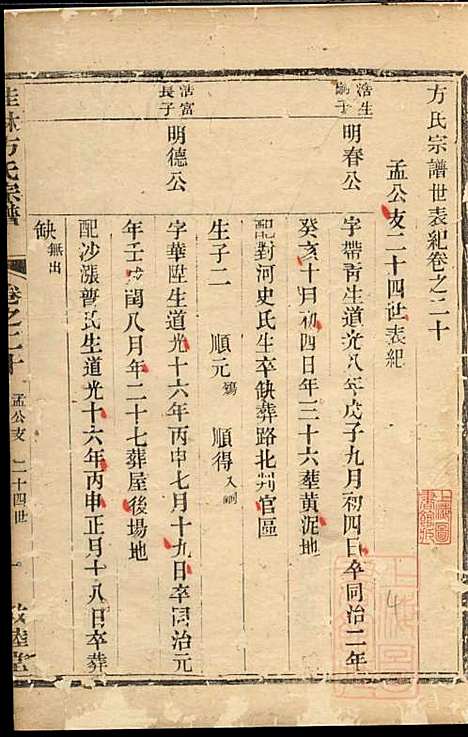 方氏宗譜世表紀卷之二十
孟公支二十四世表紀
浩生
嗣子
明春公
字帶甫生道光八年戊子九月初四日卒同治二年
癸亥十月初四日年三十六葬黃泥地
配對河史氏生卒缺葬路北判官區
生子二 順元 鴻 順得 入嗣
浩富
長子
明德公
字華陞生道光十六年丙申七月十九日卒同治元
年壬戌閏八月年二十七葬屋後場地
配沙漲曹氏生道光十六年丙申正月十八日卒葬
缺 無出
桂林方氏宗譜
卷之二十 孟公支 二十四世
一 敦睦堂
上海圖書館藏